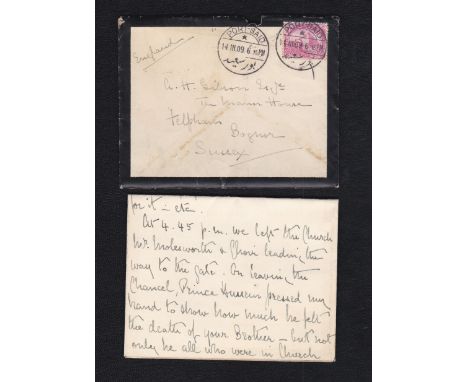 England
PORT-SAID
14.III.09.6
بور سعيد
PORT-SAID
14.III.09.6 PM
A. H. Gibson Esqre
The Manor House
Felpham
Bognor
Sussex
for it – etc.
At 4.45 p.m. we left the Church
Mr. Molesworth & Choir leading the
way to the gate. On leaving the
Chancel Prince Hussein pressed my
hand to show how much he felt
the death of your Brother – but not
only he all who were in Church